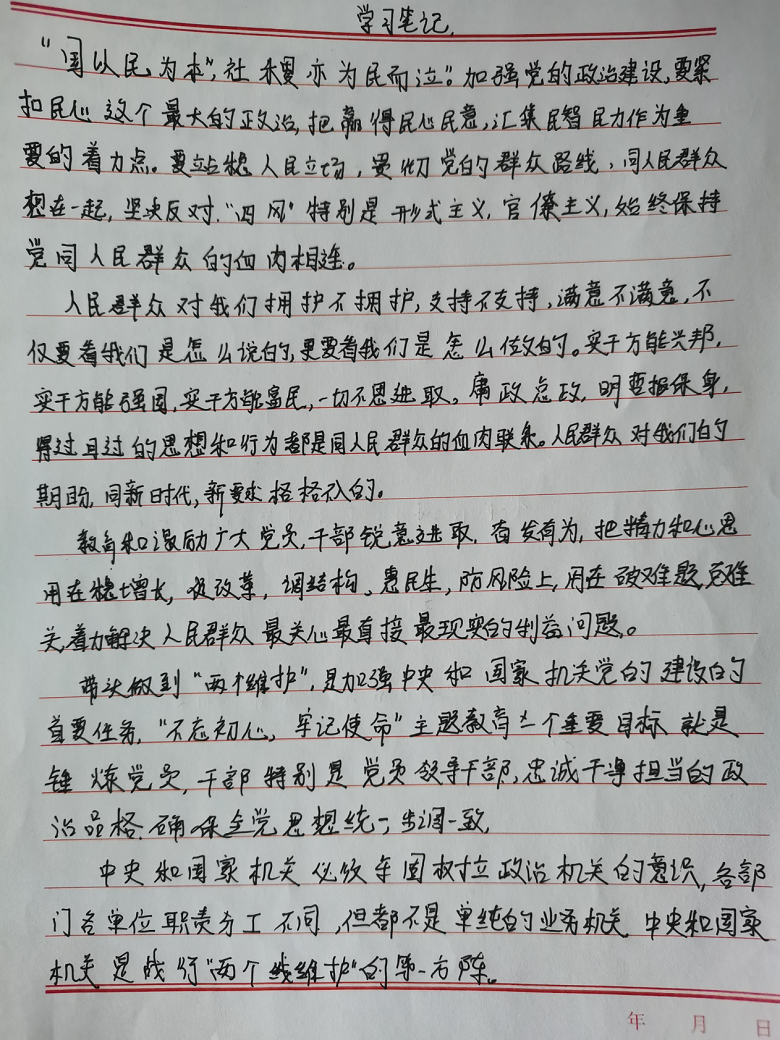 学习笔记.
“国以民为本”,社稷亦为民而泣”。加强党的政治建设,要紧
扣民心这个最大的政治,把赢得民心民意,汇集民智民力作为重
要的着力点。要站稳人民立场,贯彻党的群众路线,同人民群众
想在一起,坚决反对“四风”特别是形式主义,官僚主义,始终保持
党同人民群众的血肉相连。
人民群众对我们拥护不拥护,支持不支持,满意不满意,不
仅要看我们是怎么说的,更要看我们是怎么做的。实干方能兴邦,
实干方能强国,实干方能富民,一切不思进取。庸政怠政,明哲保身,
得过且过的思想和行为都是同人民群众的血肉联系。人民群众对我们的
期盼,同新时代,新要求格格不入的。
教育和激励广大党员,干部锐意进取,奋发有为,把精力和心思
用在稳增长,促改革,调结构、惠民生,防风险上,用在破难题,克难
关,着力解决人民群众最关心最直接最现实的利益问题。
带头做到“两个维护”,是加强中央和国家机关党的建设的
首要任务,“不忘初心,牢记使命”主题教育一个重要目标就是
锤炼党员,干部特别是党员领导干部,忠诚干净担当的政
治品格.确保全党思想统一,步调一致,
中央和国家机关必须牢固树立政治机关的意识,各部
门各单位职责分工不同,但都不是单纯的业务机关.中央和国家
机关是践行“两个维护”的第一方阵。
年 月 日